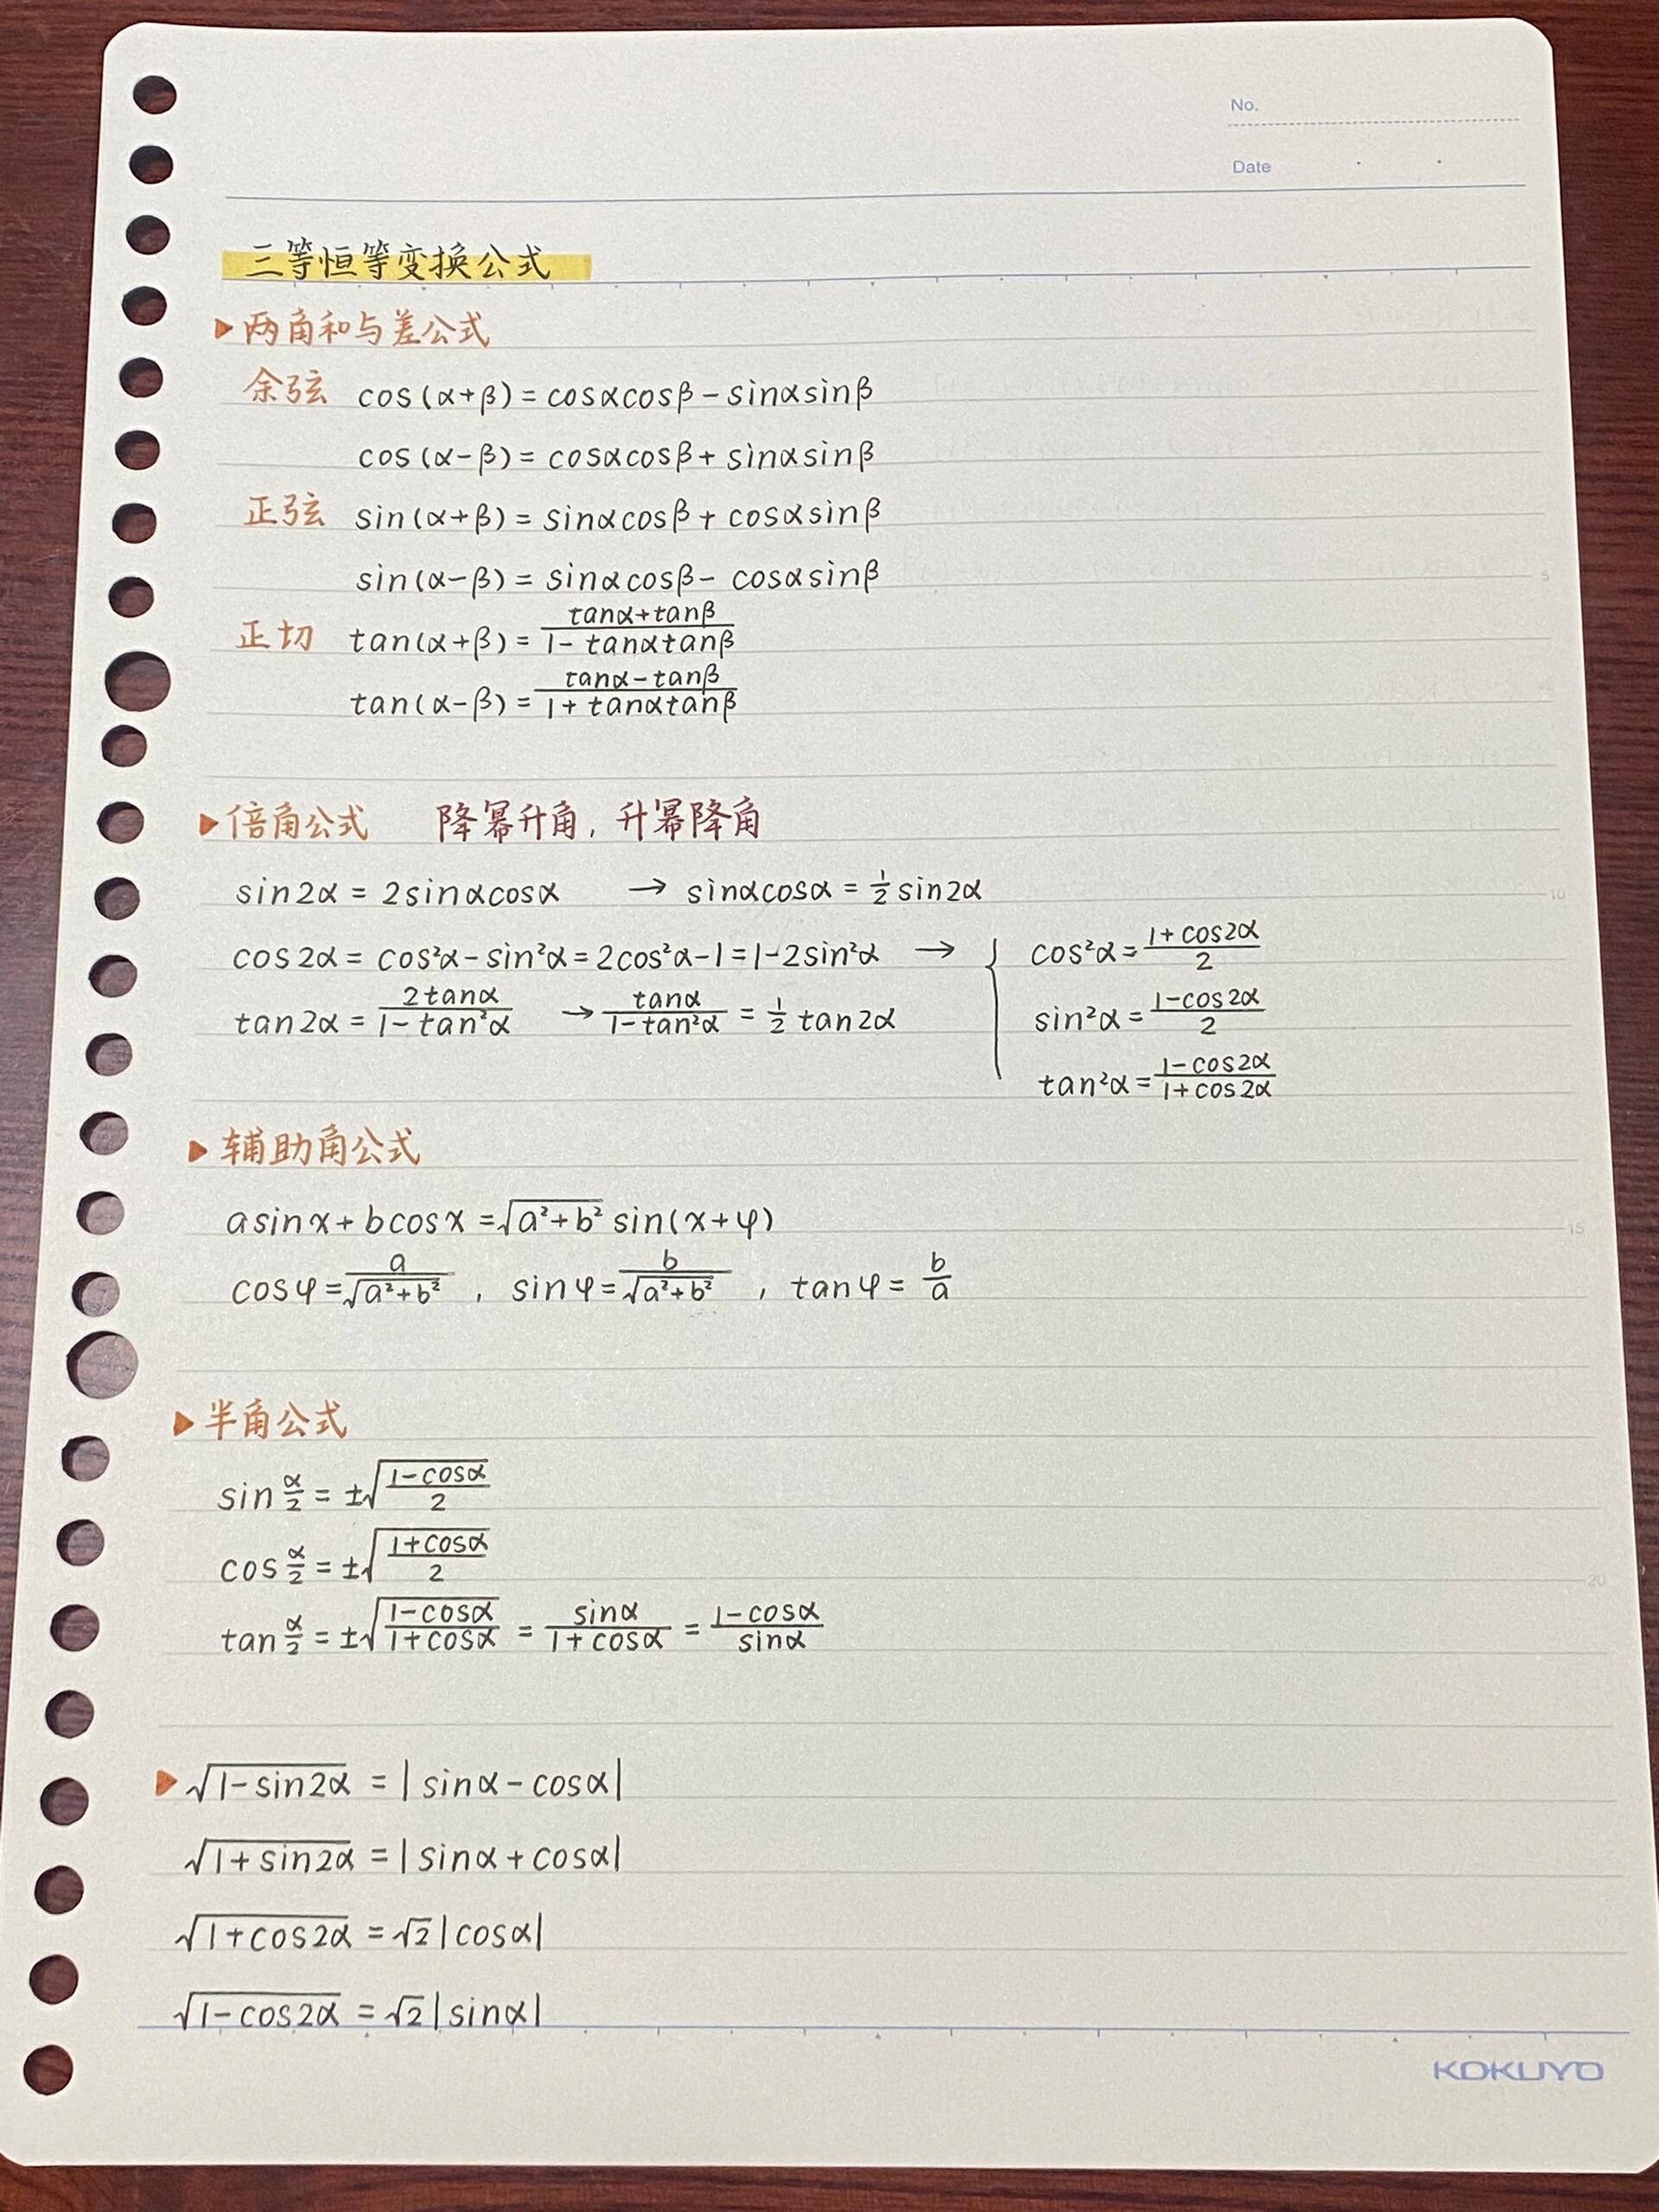 No.
Date
三等恒等变换公式
▶两角和与差公式
余弦 cos(α+β)=cosαcosβ-sinαsinβ
cos(α-β)=cosαcosβ+sinαsinβ
正弦 sin(α+β)=sinαcosβ+cosαsinβ
sin(α-β)=sinαcosβ-cosαsinβ
5
正切 tan(α+β)=(tanα+tanβ)/(1-tanαtanβ)
tan(α-β)=(tanα-tanβ)/(1+tanαtanβ)
▶倍角公式 降幂升角,升幂降角
sin2α=2sinαcosα → sinαcosα=1/2 sin2α
10
cos2α=cos²α-sin²α=2cos²α-1=1-2sin²α → { cos²α=(1+cos2α)/2
tan2α=2tanα/(1-tan²α) → tanα/(1-tan²α)=1/2 tan2α sin²α=(1-cos2α)/2
tan²α=(1-cos2α)/(1+cos2α)
▶辅助角公式
asinx+bcosx=√(a²+b²) sin(x+φ)
15
cosφ=a/√(a²+b²) , sinφ=b/√(a²+b²) , tanφ=b/a
▶半角公式
sin α/2=±√((1-cosα)/2)
cos α/2=±√((1+cosα)/2)
20
tan α/2=±√((1-cosα)/(1+cosα))=sinα/(1+cosα)=(1-cosα)/sinα
▶√(1-sin2α)=|sinα-cosα|
√(1+sin2α)=|sinα+cosα|
√(1+cos2α)=√2|cosα|
√(1-cos2α)=√2|sinα|
KOKUYO